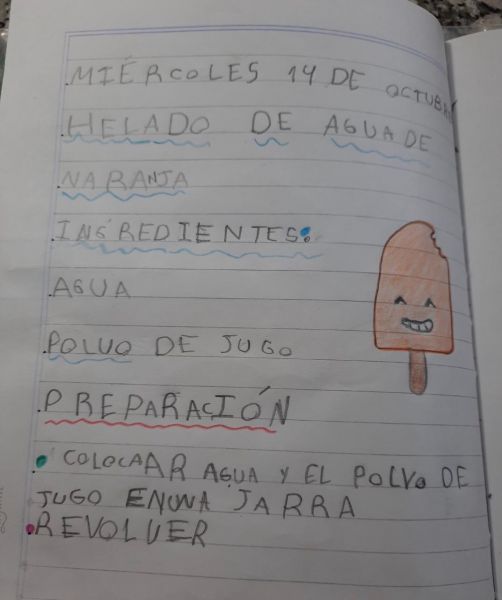 MIÉRCOLES 14 DE OCTUBRE
HELADO DE AGUA DE
NARANJA
INGREDIENTES:
AGUA
POLVO DE JUGO
PREPARACIÓN
COLOCAAR AGUA Y EL POLVO DE
JUGO EN UNA JARRA
REVOLVER